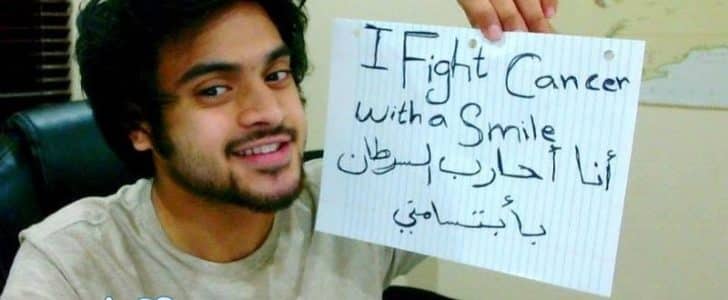 I Fight Cancer
with a Smile
أنا أحارب السرطان
بأبتسامتي